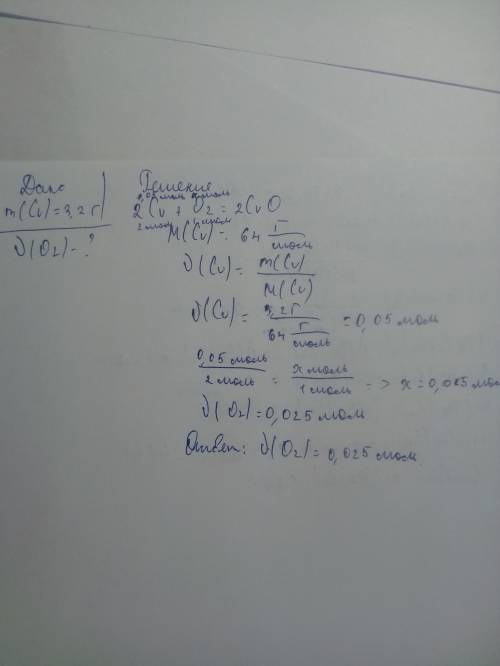 Дано
m(Cu)=3,2 г
ν(O2)-?
Решение
0,05 моль x моль
2Cu + O2 = 2CuO
2 моль 1 моль
M(Cu) = 64 г/моль
ν(Cu) = m(Cu)/M(Cu)
ν(Cu) = 3,2 г / 64 г/моль = 0,05 моль
0,05 моль / 2 моль = x моль / 1 моль => x = 0,025 мол
ν(O2) = 0,025 моль
Ответ: ν(O2) = 0,025 моль